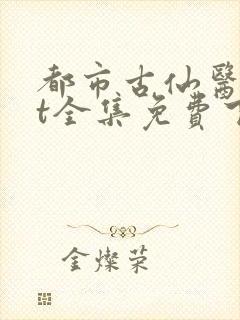 都市古仙醫
t全集免費
金燦荣